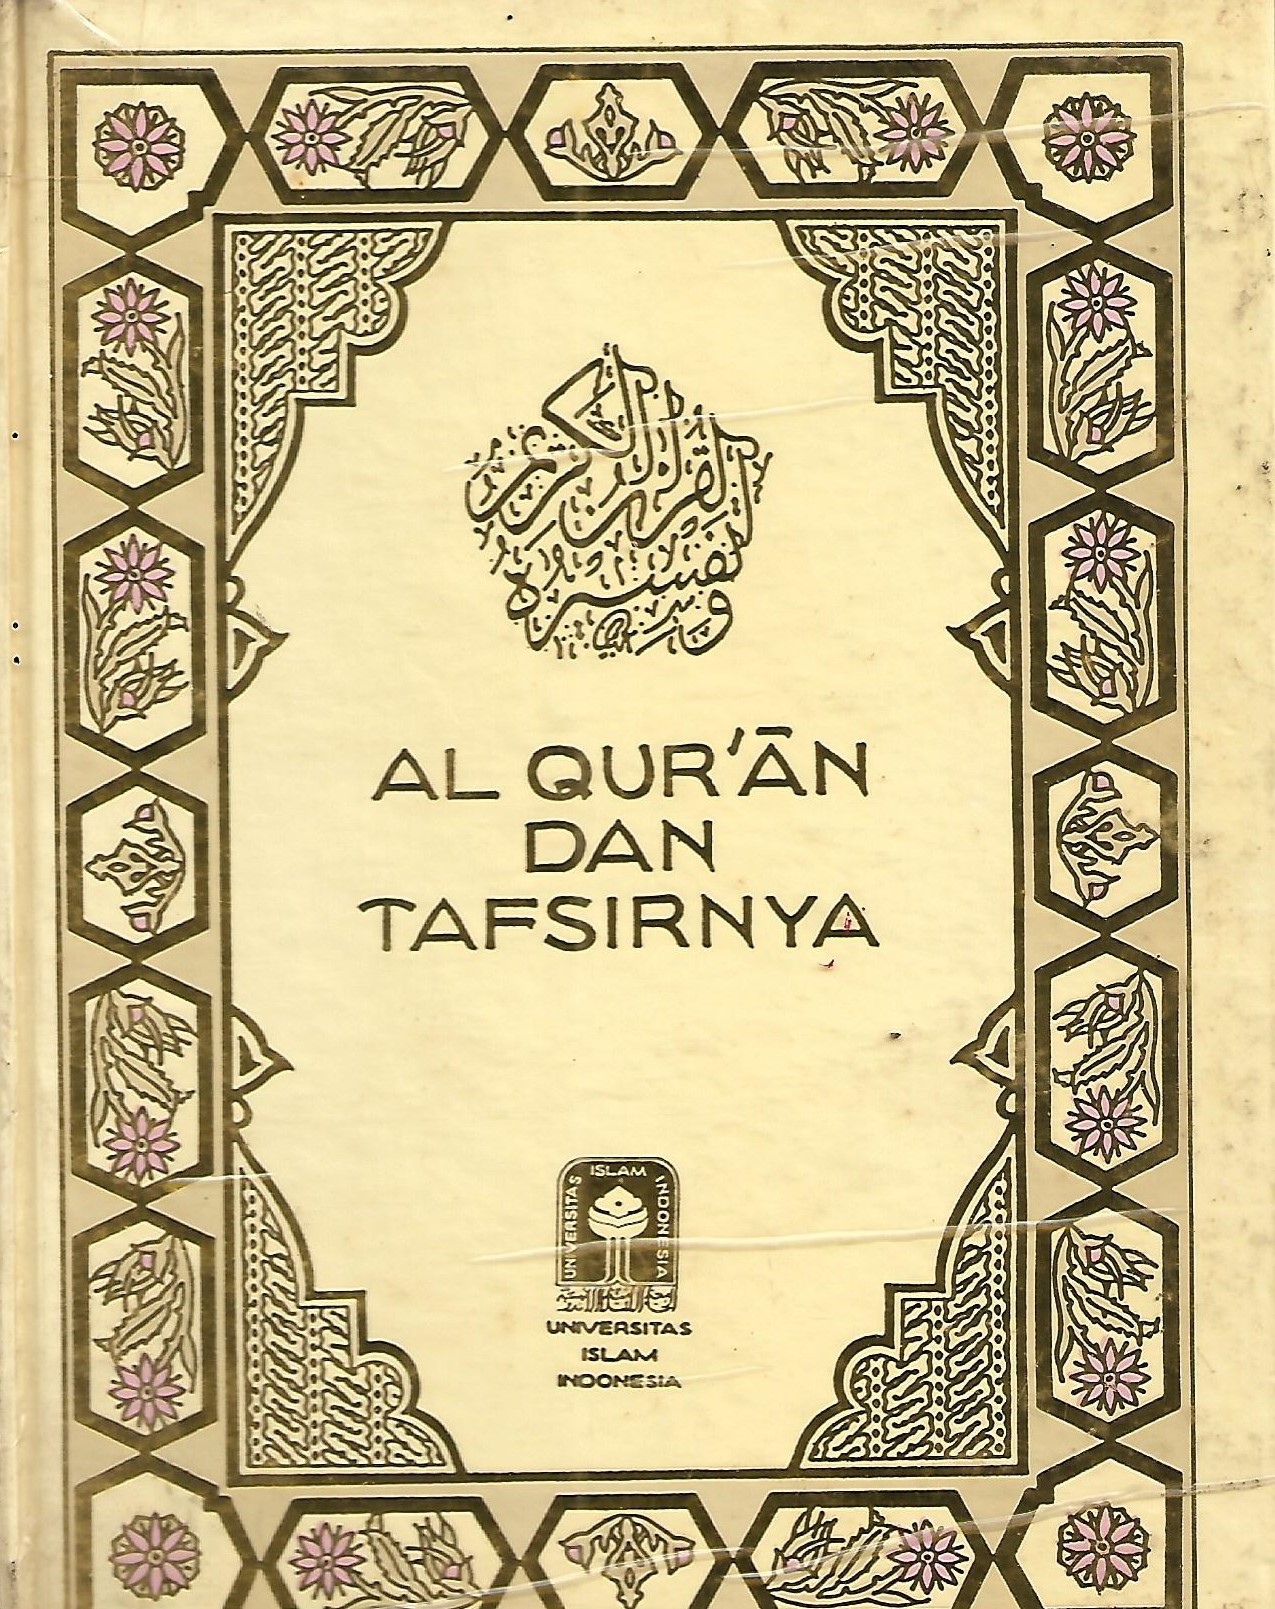 القرآن الكريم
وتفسيره
AL QUR'ĀN
DAN
TAFSIRNYA
UNIVERSITAS ISLAM INDONESIA
UNIVERSITAS
ISLAM
INDONESIA